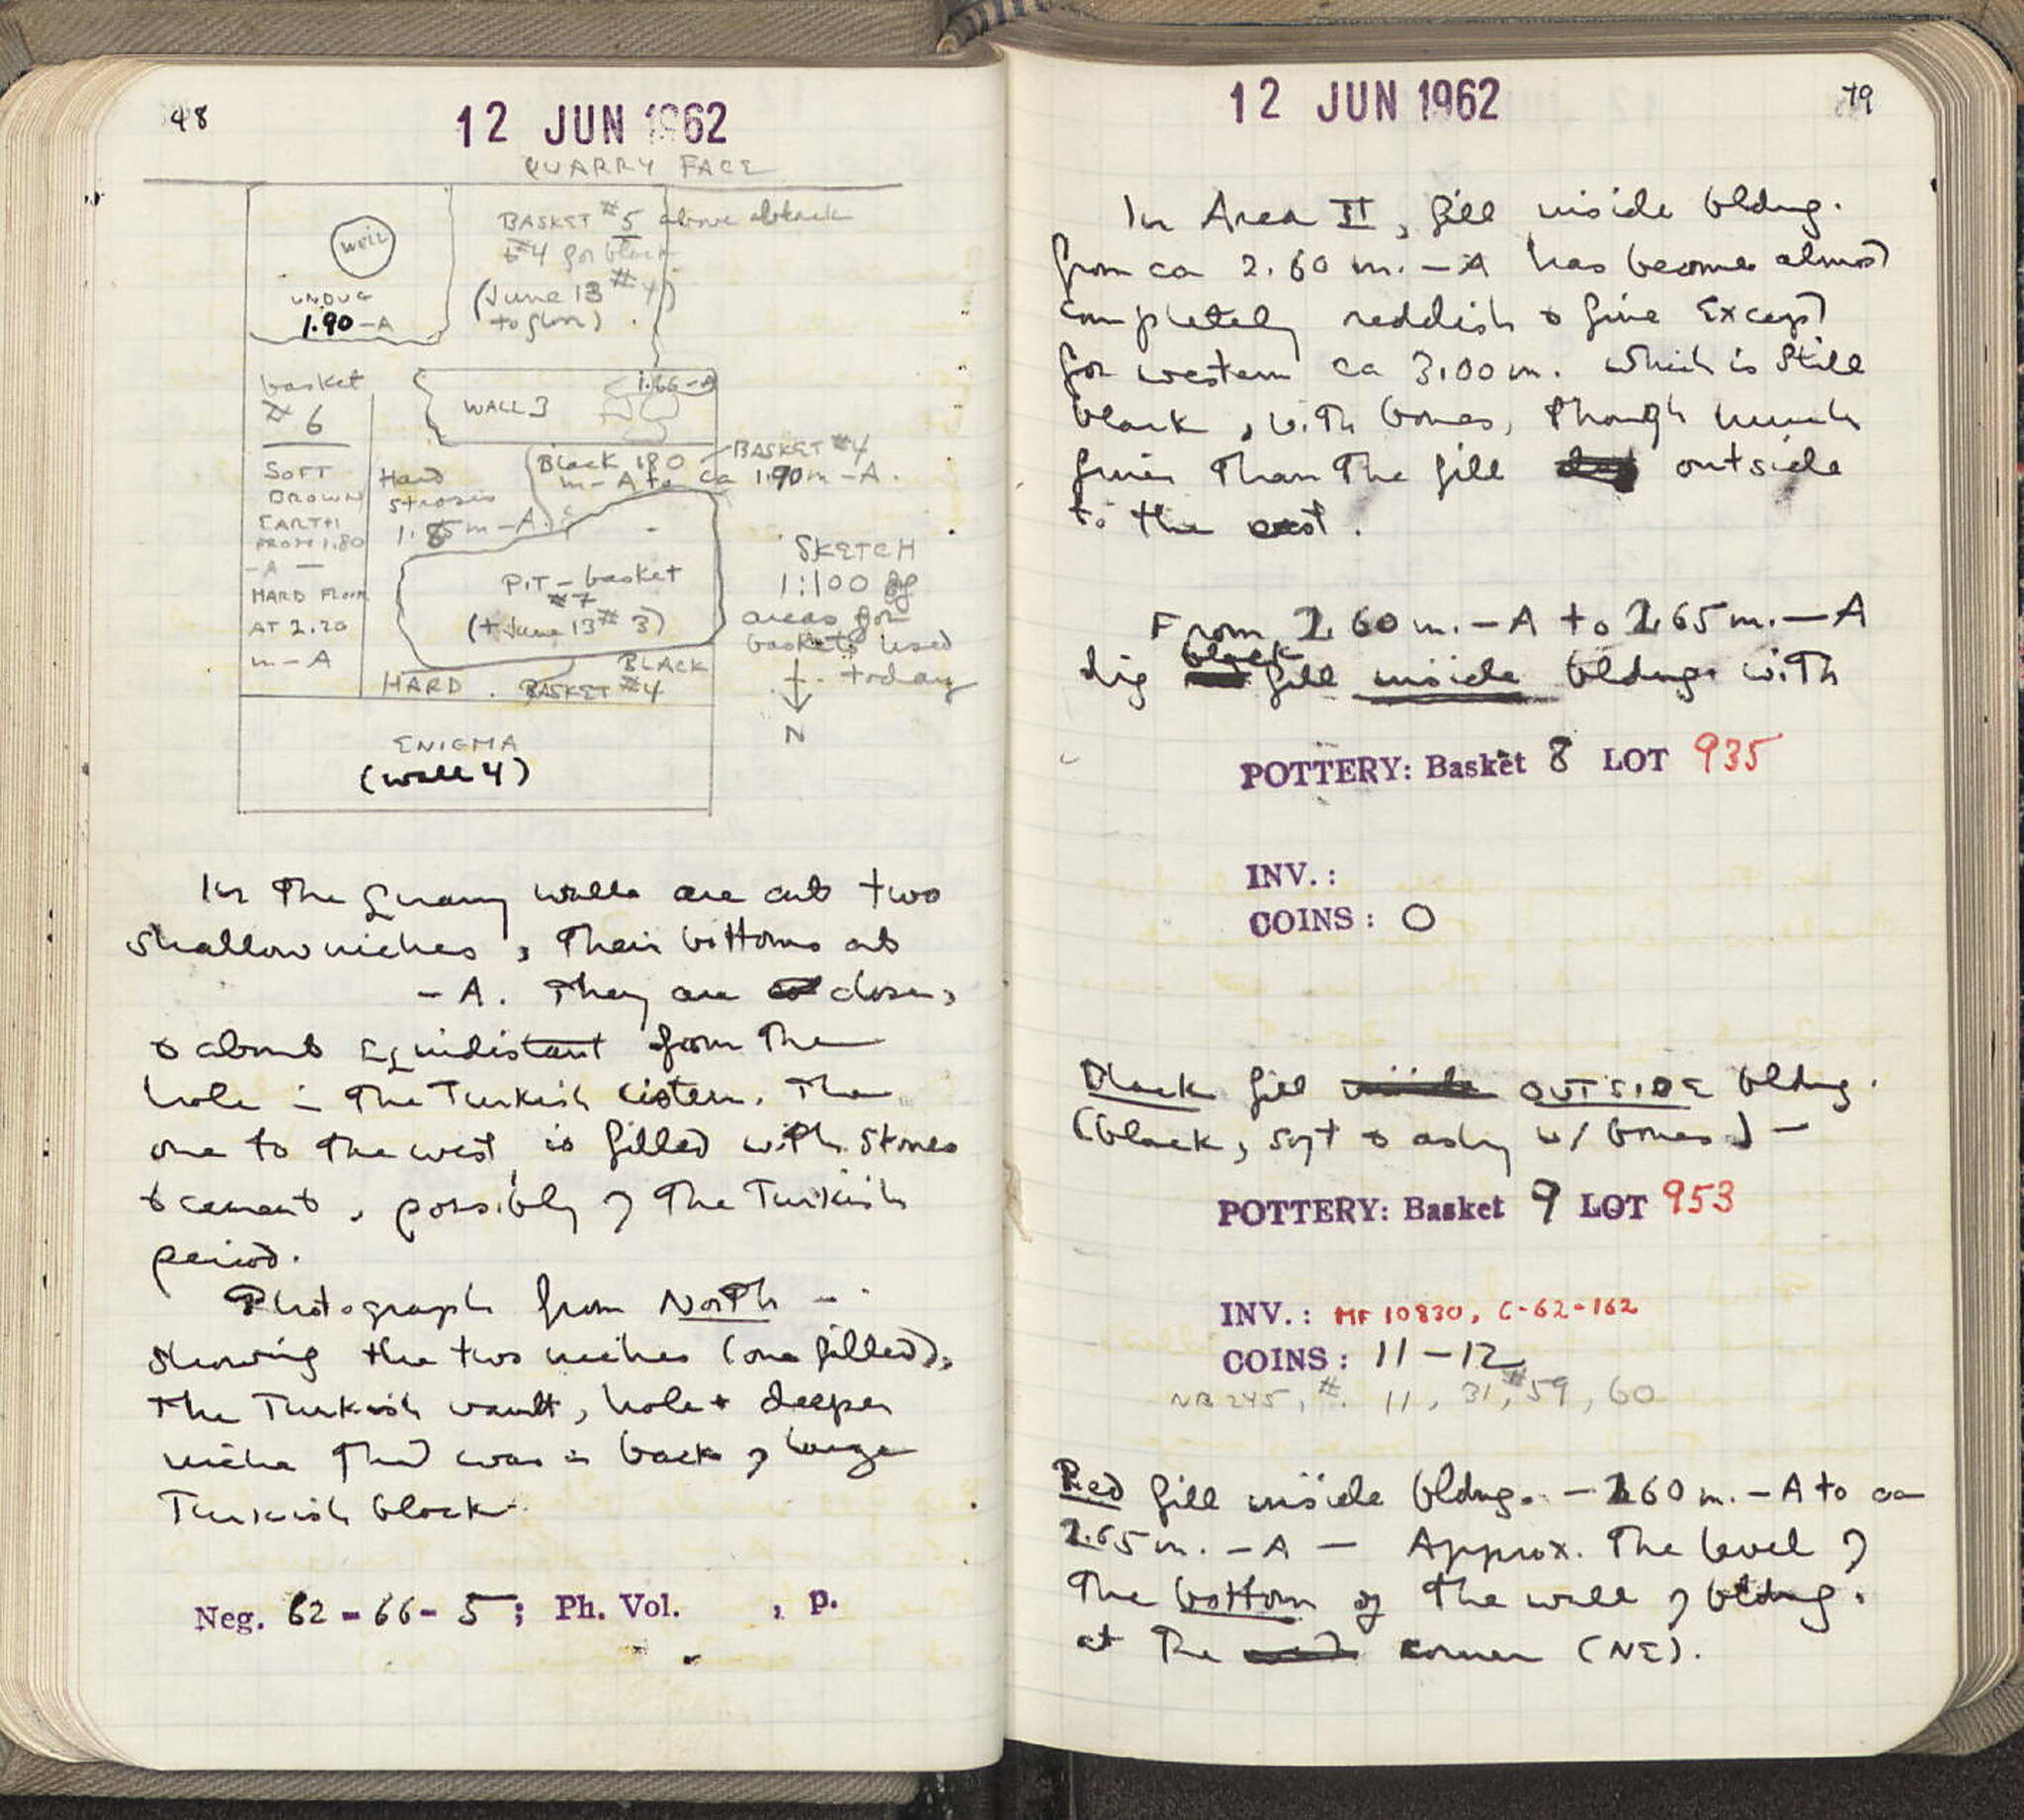 48
12 JUN 1962
QUARRY FACE
WELL
UNDUG
1.90 -A
BASKET #5 above black
#4 for black
(June 13 #4)
to floor)
basket
# 6
SOFT
BROWN
EARTH
FROM 1.80
-A —
HARD FLOOR
AT 2.20
m-A
WALL 3
1.66-A
Hard
stroses
1.85m-A.
Black 1.80
m-A to ca 1.90m-A.
BASKET #4
PIT - basket
#7
(+ June 13 # 3)
HARD.
BLACK
BASKET #4
SKETCH
1:100 of
areas for
baskets used
today
N
ENIGMA
(wall 4)
In the Quarry walls are cut two
shallow niches, their bottoms at
-A. They are close,
& about equidistant from the
hole in the Turkish cistern. The
one to the west is filled with stones
& cement, possibly of the Turkish
period.
Photograph from North -
showing the two niches (one filled),
the Turkish vault, hole + deeper
niche that was in back of large
Turkish block.
Neg. 62-66-5; Ph. Vol. , p.
49
12 JUN 1962
In Area II, fill inside bldng.
from ca 2.60 m.-A has become almost
completely reddish & fine except
for western ca 3.00m. which is still
black, with bones, though much
finer than the fill outside
to the east.
From 2.60 m.-A to 2.65 m.-A
dig black fill inside bldng. with
POTTERY: Basket 8 LOT 935
INV.:
COINS: 0
Black fill inside OUTSIDE bldng.
(black, soft & ashy w/ bones) -
POTTERY: Basket 9 LOT 953
INV.: MF 10830, C-62-162
COINS: 11-12
NB 245, #. 11, 31, #59, 60
Red fill inside bldng. - 2.60 m.-A to ca
2.65 m.-A — Approx. the level of
the bottom of the wall of bldng.
at the corner (NE).